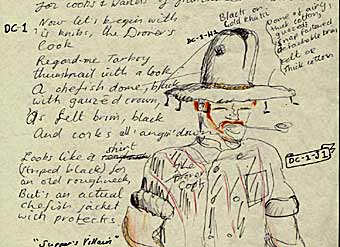 For cooks & 
DC-1
Now let's begin with
is knibs, the Drover's
Cook
Regard me Tarboy
thumbnail with a look
A chefish dome, black
with gauzed crown,
'is felt brim, black
And corks all 'angin' down
Looks like a shirt
(striped black) for
an old roughneck,
But's an actual
chefish jacket
wich protects
"Supper's Villain"
Black on
Gold Khaki
DC-1-H1
Dome of airy,
cotton,
gauzed
Snap fastened
detachable from
felt or
thick cotton
Drover's
Cook
DC-1-J1